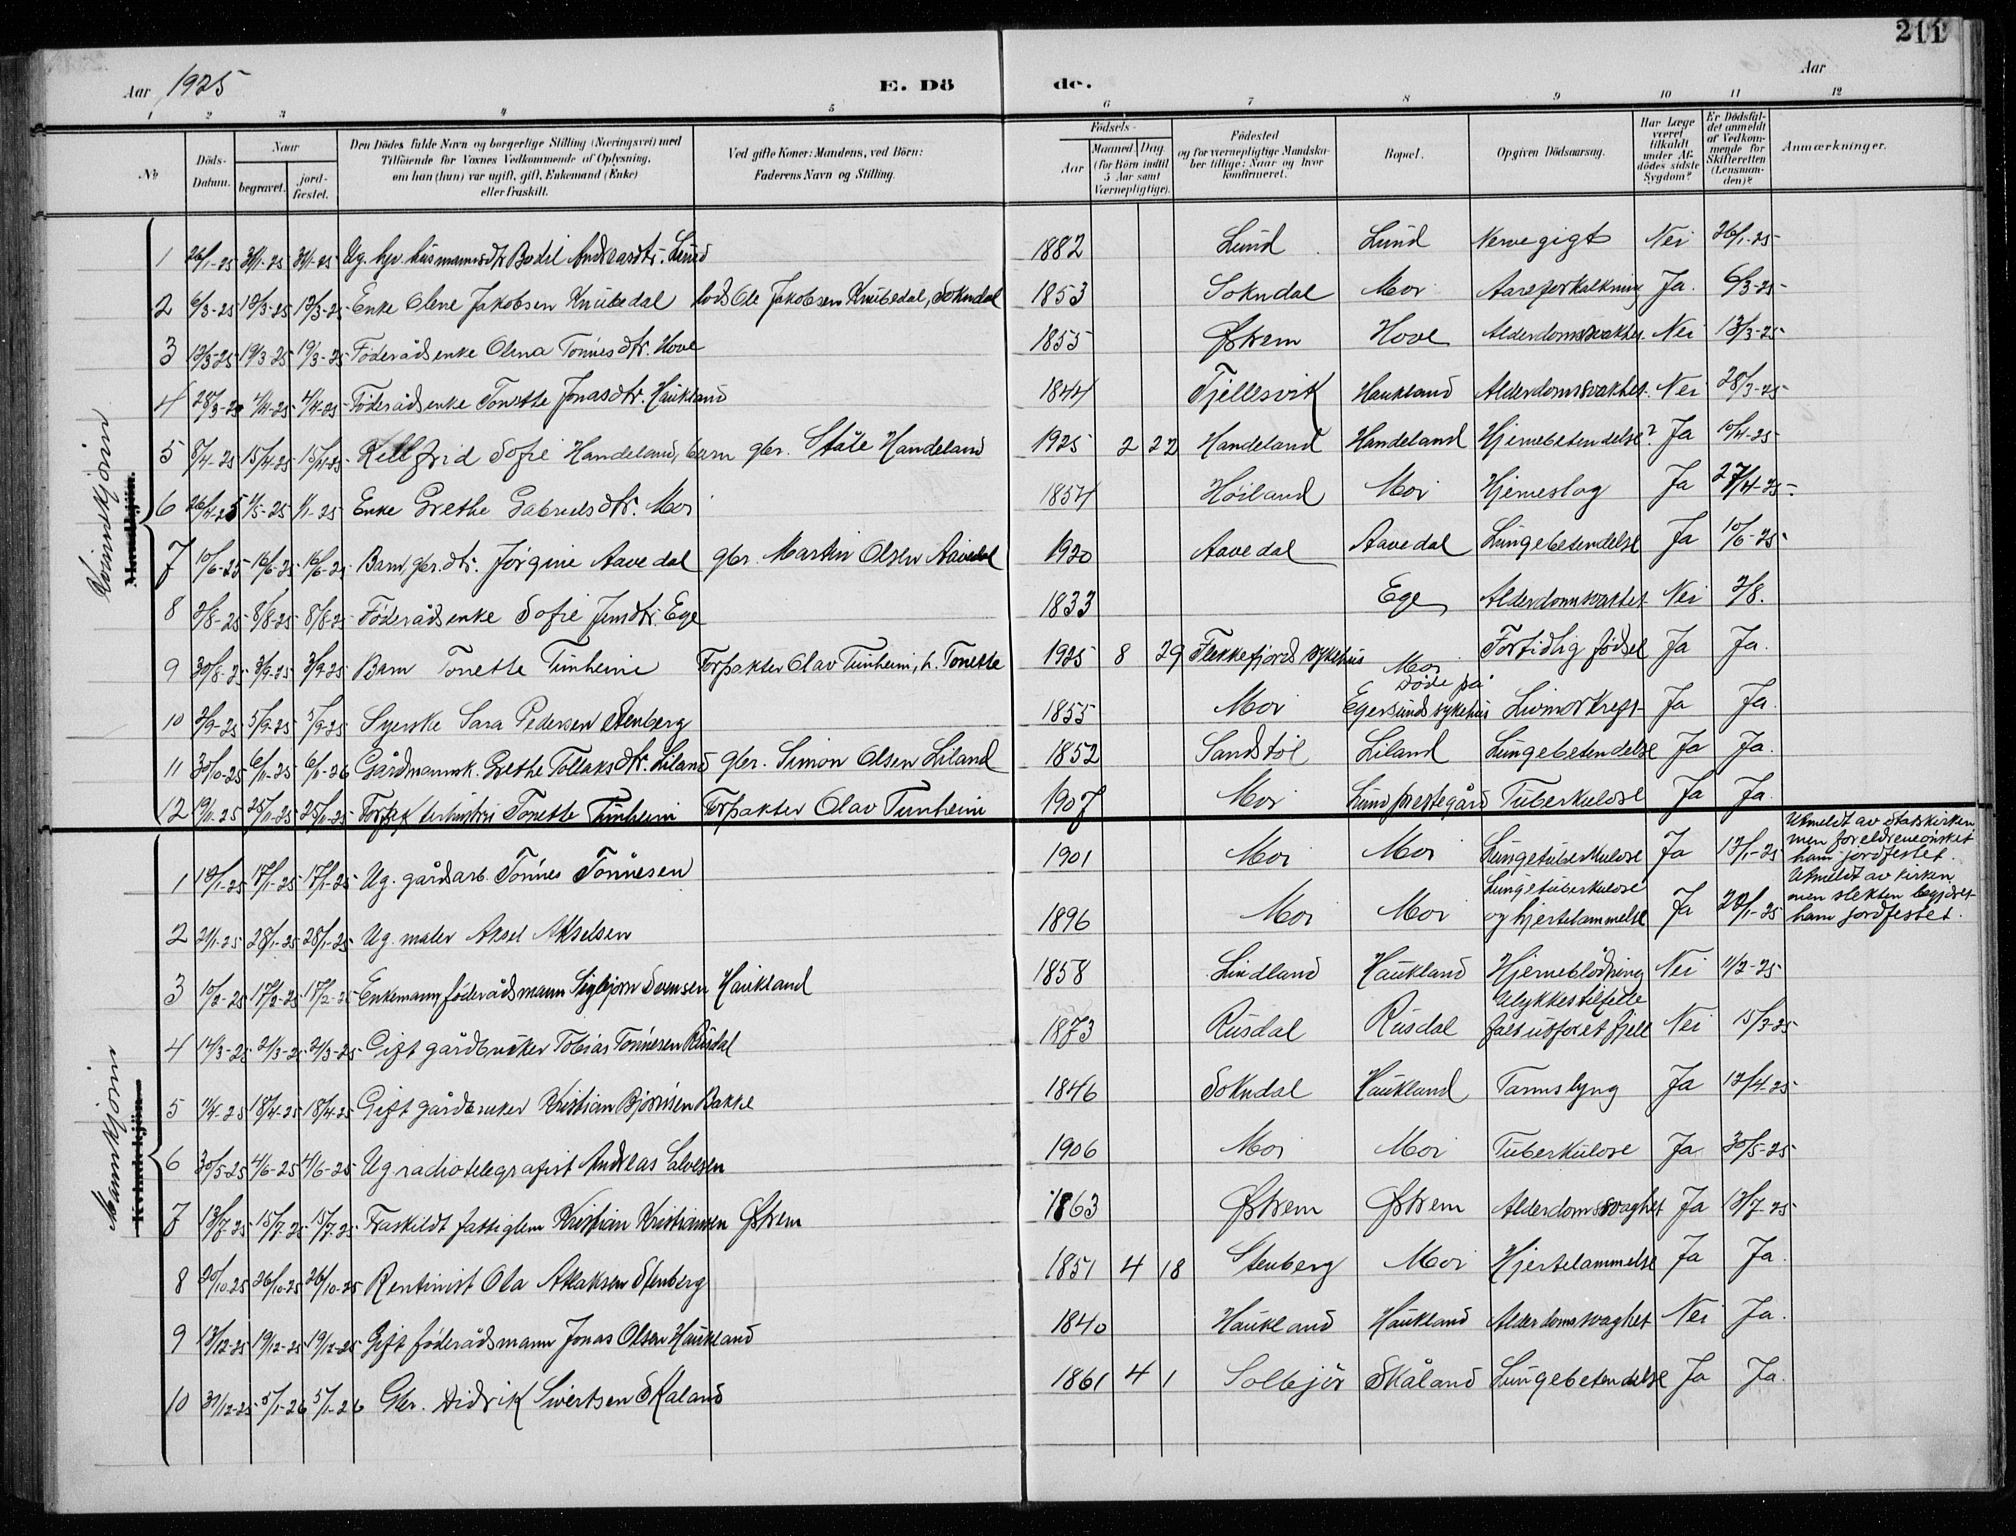 211
Aar 1925 E. Dö de. Aar
1 2 3 4 5 6 7 8 9 10 11 12
№ Döds-Datum. Naar begravet. jord-fæstet. Den Dödes fulde Navn og borgerlige Stilling (Næringsvei) med Tilföiende for Voxnes Vedkommende af Oplysning, om han (hun) var ugift, gift, Enkemand (Enke) eller fraskilt. Ved gifte Koner: Mandens, ved Börn: Faderens Navn og Stilling. Födsels- Aar Maaned Dag. (for Börn indtil 5 Aar samt Værnepligtige). Födested og for værnepligtige Mandskaber tillige: Naar og hvor konfirmeret. Bopæl. Opgiven Dödsaarsag. Har Læge været tilkaldt under Afdödes sidste Sygdom? Er Dödsfaldet anmeldt af Vedkommende for Skifteretten (Lensmanden)? Anmærkninger.
Kvinnekjønn
Mandkjön.
1 26/1-25 31/1-25 31/1-25 Ug. hjv. husmannsdtr Bodil Andreasdtr. Lund 1882 Lund Lund Nervegigt Nei 26/1-25
2 6/3-25 12/3-25 12/3-25 Enke Olene Jakobsen Knubedal lods Ole Jakobsen Knubedal, Sokndal 1853 Sokndal Moi Aareforkalkning Ja 6/3-25
3 13/3-25 19/3-25 19/3-25 Föderådsenke Olena Tonnesdtr. Hove 1855 Østrem Hove Alderdomssvakhet. Nei 13/3-25
4 28/3-25 4/4-25 4/4-25 Föderådsenke Tonette Jonasdtr. Haukland 1844 Fjellesvik Haukland Alderdomssvakhet. Nei 28/3-25
5 8/4-25 15/4-25 15/4-25 Kellfrid Sofie Handeland, barn gbr. Ståle Handeland 1925 2 22 Handeland Handeland Hjernebetendelse? Ja 10/4-25
6 26/4-25 1/5-25 1/5-25 Enke Grethe Gabrielsdtr. Moi 1854 Høiland Moi Hjerneslag Ja 27/4-25
7 10/6-25 16/6-25 16/6-25 Barn, gbr.dtr. Jörgine Aavedal gbr. Martin Olsen Aavedal 1920 Aavedal Aavedal Lungebetendelse Ja 10/6-25
8 2/8-25 8/8-25 8/8-25 Föderådsenke Sofie Jensdtr. Ege 1833 Ege Alderdomssvakhet Nei 2/8.
9 30/8-25 3/9-25 3/9-25 Barn Tonette Tunheim Forpakter Olav Tunheim, h. Tonette 1925 8 29 Flekkefjords sykehus Moi Fortidlig fødsel Ja Ja.
10 2/9-25 5/9-25 5/9-25 Syerske Sara Pedersen Stenberg 1855 Moi Döde på Egersunds sykehus Livmorkreft Ja Ja.
11 30/10-25 6/11-25 6/11-26 Gårdmannsk. Grethe Tollaksdtr. Liland gbr. Simon Olsen Liland 1852 Sandstöl Liland Lungebetendelse Ja Ja.
12 19/11-25 25/11-25 25/11-25 Forpakterhustru Tonette Tunheim Forpakter Olav Tunheim 1907 Moi Lund prestegård Tuberkulose Ja Ja.
Mannkjönn
Kvindekjön.
1 12/1-25 17/1-25 17/1-25 Ug. gårdsarb. Tönnes Tönnesen 1901 Moi Moi Lungetuberkulose Ja 13/1-25 Utmeldt av statskirken men foreldrene ønsket ham jordfestet.
2 21/1-25 28/1-25 28/1-25 Ug. maler Aksel Akselsen 1896 Moi Moi Lungetuberkulose og hjertelammelse Ja 22/1-25 Utmeldt av kirken men slekten begjæret ham jordfestet.
3 10/2-25 17/2-25 17/2-25 Enkemann, föderådsmann Sigbjørn Svensen Haukland 1858 Lindland Haukland Hjerneblödning Nei 11/2-25
4 14/3-25 21/3-25 21/3-25 Gift gårdbruker Tobias Tönnesen Rusdal 1873 Rusdal Rusdal Ulykkestilfelle falt utfor et fjell Nei 15/3-25
5 11/4-25 18/4-25 18/4-25 Gift gårdbruker Kristian Björnsen Bakke 1846 Sokndal Haukland Tarmslyng Ja 12/4-25
6 30/5-25 4/6-25 4/6-25 Ug. radiotelegrafist Andreas Salvesen 1906 Moi Moi Tuberkulose Ja 30/5-25
7 13/7-25 15/7-25 15/7-25 Fraskildt fattiglem Kristian Kristiansen Østrem 1863 Østrem Østrem Alderdomssvaghet Ja 13/7-25
8 20/10-25 26/10-25 26/10-25 Rentinist Ola Aslaksen Stenberg 1851 4 18 Stenberg Moi Hjertelammelse Ja Ja.
9 13/12-25 19/12-25 19/12-25 Gift föderådsmann Jonas Olsen Haukland 1840 Haukland Haukland Alderdomssvaghet Nei Ja.
10 31/12-25 5/1-26 5/1-26 Gbr. Didrik Sivertsen Skaland 1861 4 1 Solbjör Skåland Lungebetendelse Ja Ja.